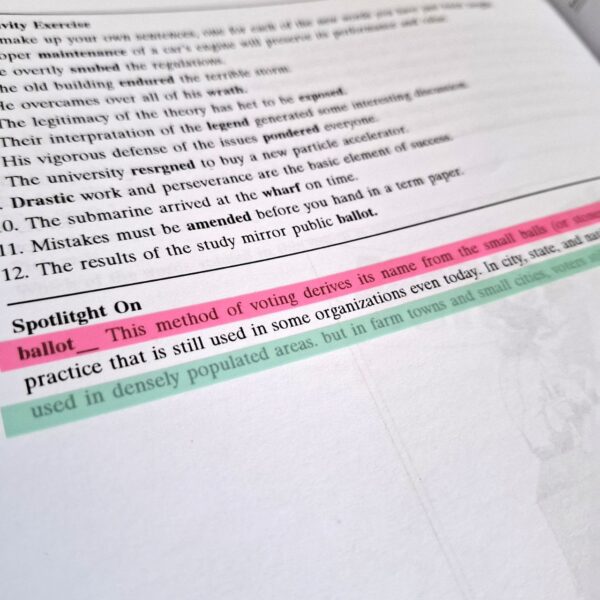 vity Exercise
make up your own sentences, one for each of the new words you have just
oper maintenance of a car's engine will preserve its performance and value.
e overtly snubed the regulations.
he old building endured the terrible storm.
He overcames over all of his wrath.
The legitimacy of the theory has het to be exposed.
Their interpratation of the legend generated some interesting discussion.
His vigorous defense of the issues pondered everyone.
The university resrgned to buy a new particle accelerator.
. Drastic work and perseverance are the basic element of success.
10. The submarine arrived at the wharf on time.
11. Mistakes must be amended before you hand in a term paper.
12. The results of the study mirror public ballot.
Spotlitght On
ballot__ This method of voting derives its name from the small balls (or stones
practice that is still used in some organizations even today. In city, state, and
used in densely populated areas. but in farm towns and small cities, voters